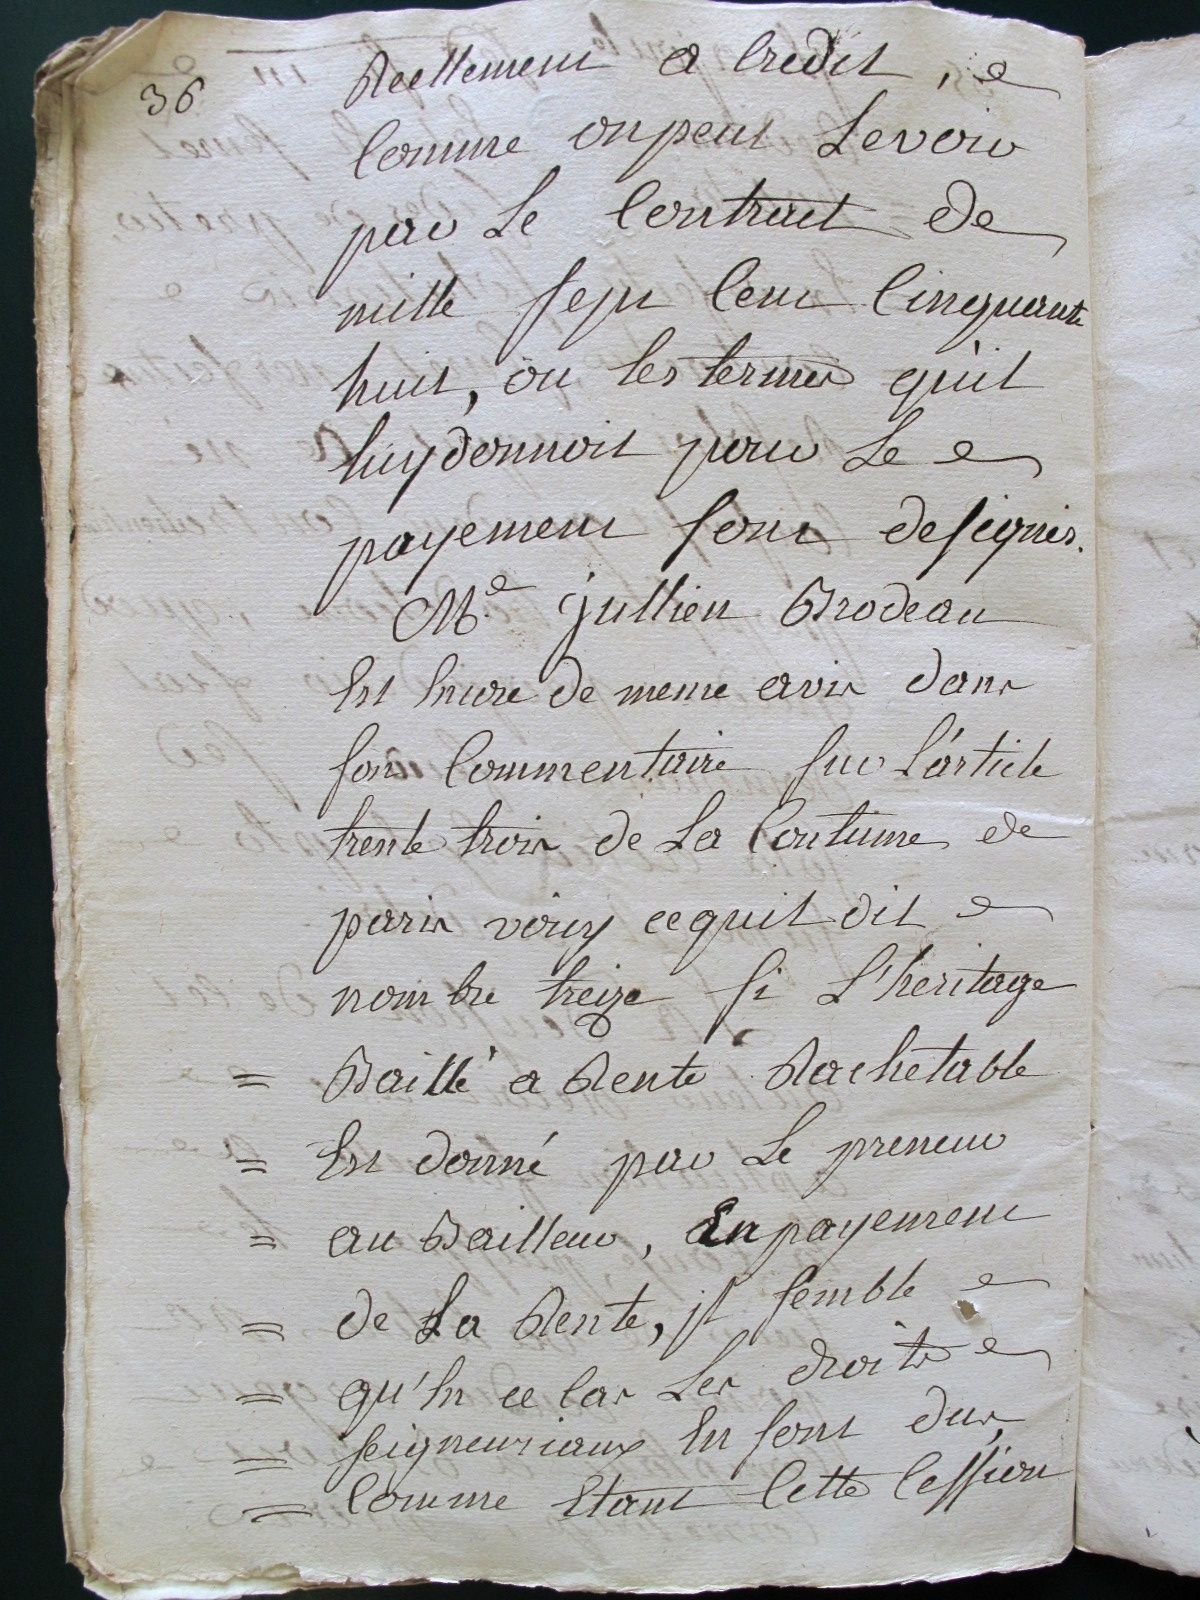 36
Reellement a Credit,
Comme on peut Le voir
par Le Contract de
mille sept Cent Cinquante
huit, ou les termes qu'il
luy donnoit pour Le
payement sont designés.
Me. jullien Brodeau
Est Encore de meme avis dans
son Commentaire sur L'article
trente trois de La Coutume de
paris voicy ce quil dit
nombre treize si L'heritage
= Baillé a Rente Rachetable
= Est donné par Le preneur
= au Bailleur, En payement
= de La Rente, jl semble
= qu'En ce Cas Les droits
= seigneuriaux En sont dus,
= Comme Etant Cette Cession